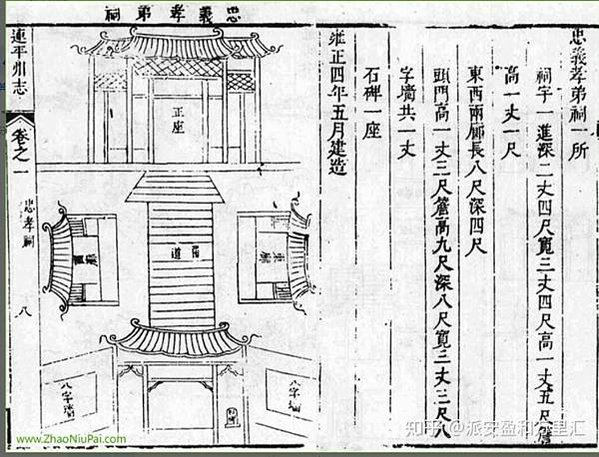 忠義孝弟祠一所
祠宇一進深二丈四尺寬三丈四尺高一丈五尺簷
高一丈一尺
東西兩廊長八尺深四尺
頭門高一丈三尺簷高九尺深八尺寬三丈三尺八
字墻共一丈
石碑一座
雍正四年五月建造
忠義孝弟祠
正座
東廊
西廊
道
八字墻
八字墻
連平州志
卷之一
忠孝祠
八
www.ZhaoNiuPai.com
知乎 @派安盈和
里汇